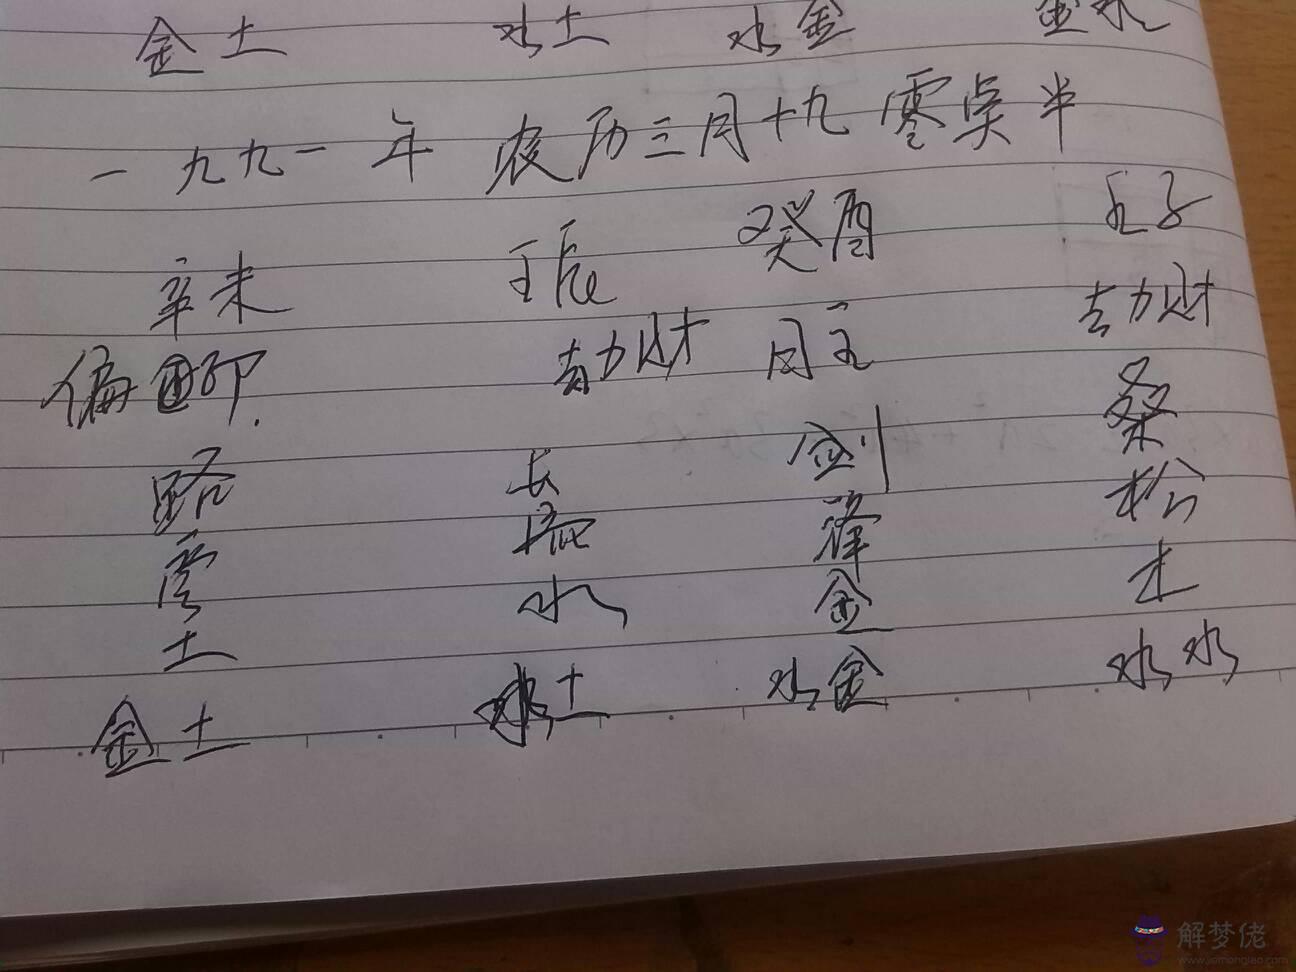 金土 水土 水金 金水
一九九一年 农历三月十九 零点半
辛未 壬辰 癸酉 壬子
偏印. 劫财 日主 劫财
路 长 剑 桑
旁 流 锋 松
土 水 金 木
金土 水土 水金 水水
解梦佬
www.jiemenglao.com